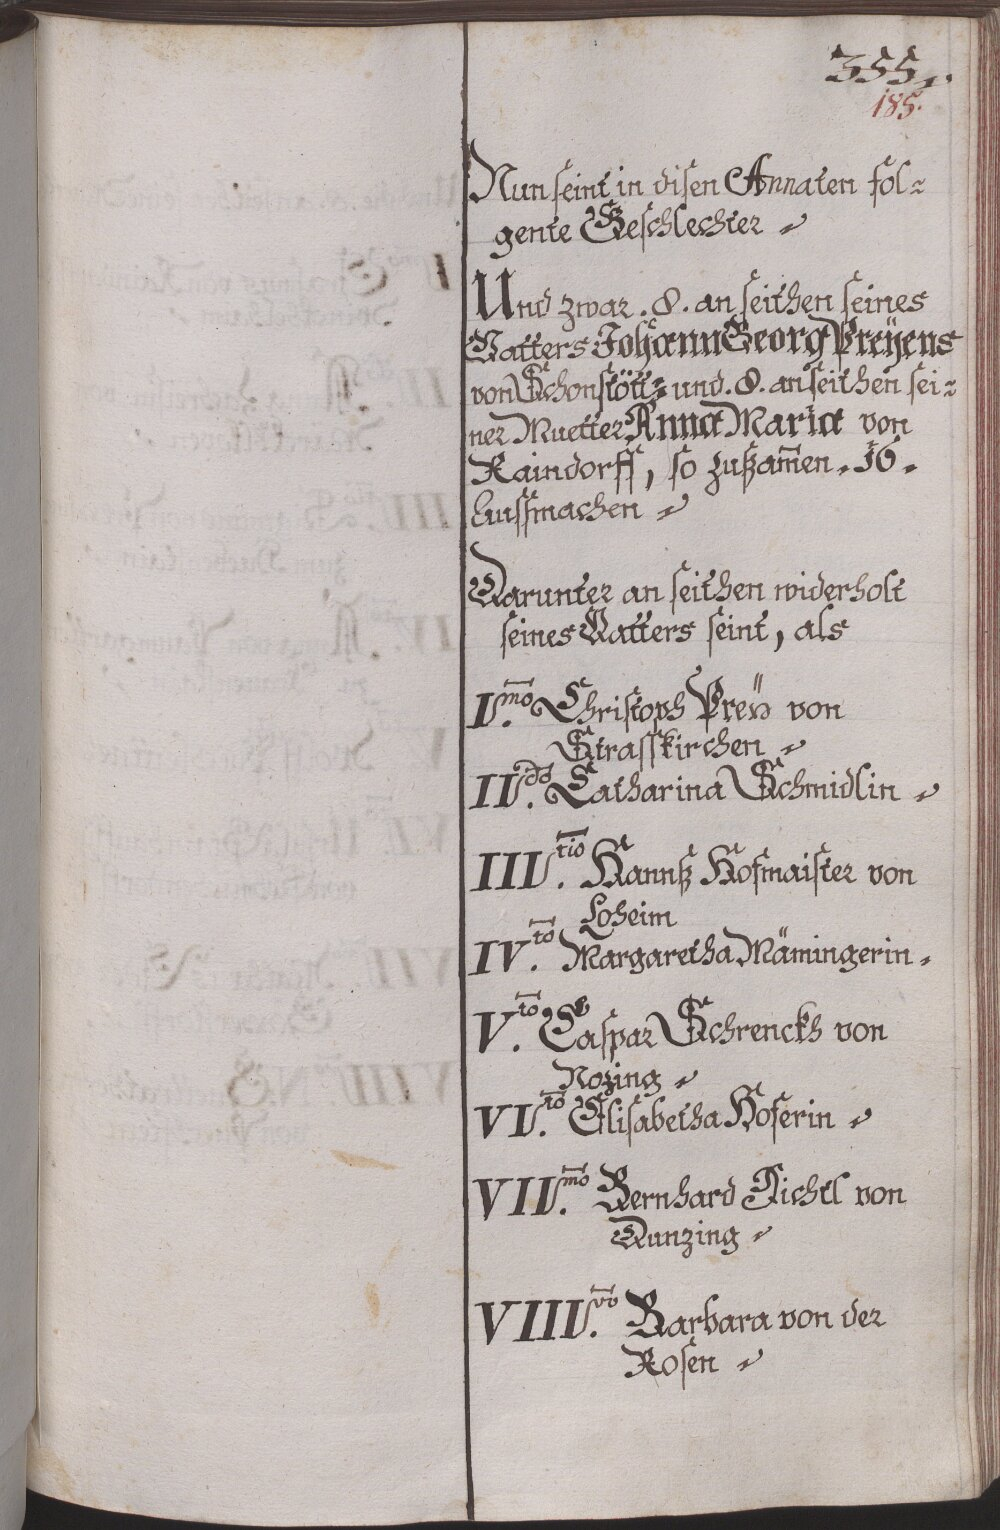 355.
185.
Nun seint in disen Annaten fol-
gente Geschlechter
Und zwar .8. an seithen seines
Vatters Johann Georg Preÿens
von Schonstött- und .8. an seithen sei-
ner Muetter Anna Maria von
Raindorff, so zußam̅en .16.
aussmachen
Darunter an seithen widerholt
seines Vatters seint, als
I.mo Christoph Preÿ von
Strasskirchen
II.do Catharina Schmidlin
III.tio Hannß Hofmaister von
Loheim
IV.to Margaretha Mämingerin.
V.to Caspar Schrenckh von
Nozing
VI.to Elisabetha Hoferin
VII.mo Bernhard Tichtl von
Dunzing
VIII.vo Barbara von der
Rosen